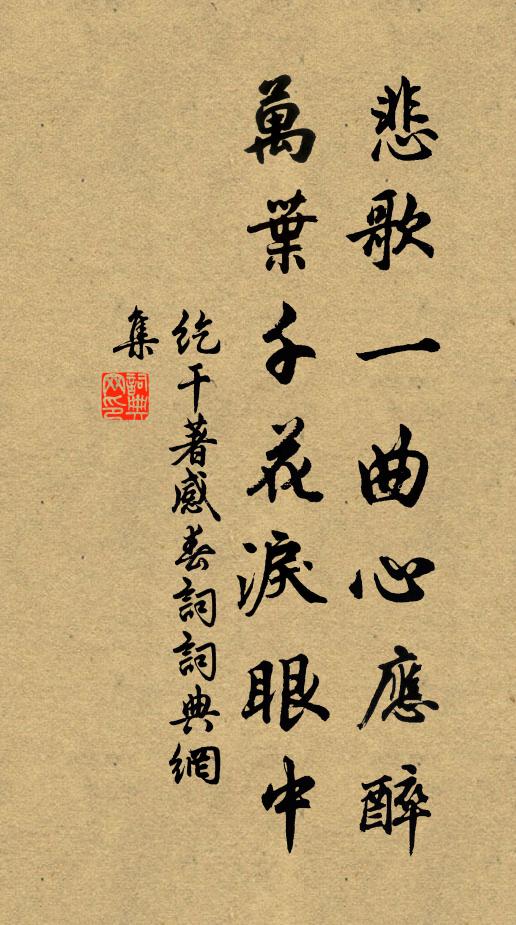 悲歌一曲心應醉
萬葉千花淚眼中
紇干著感春詞詞典網
集
詞典網印